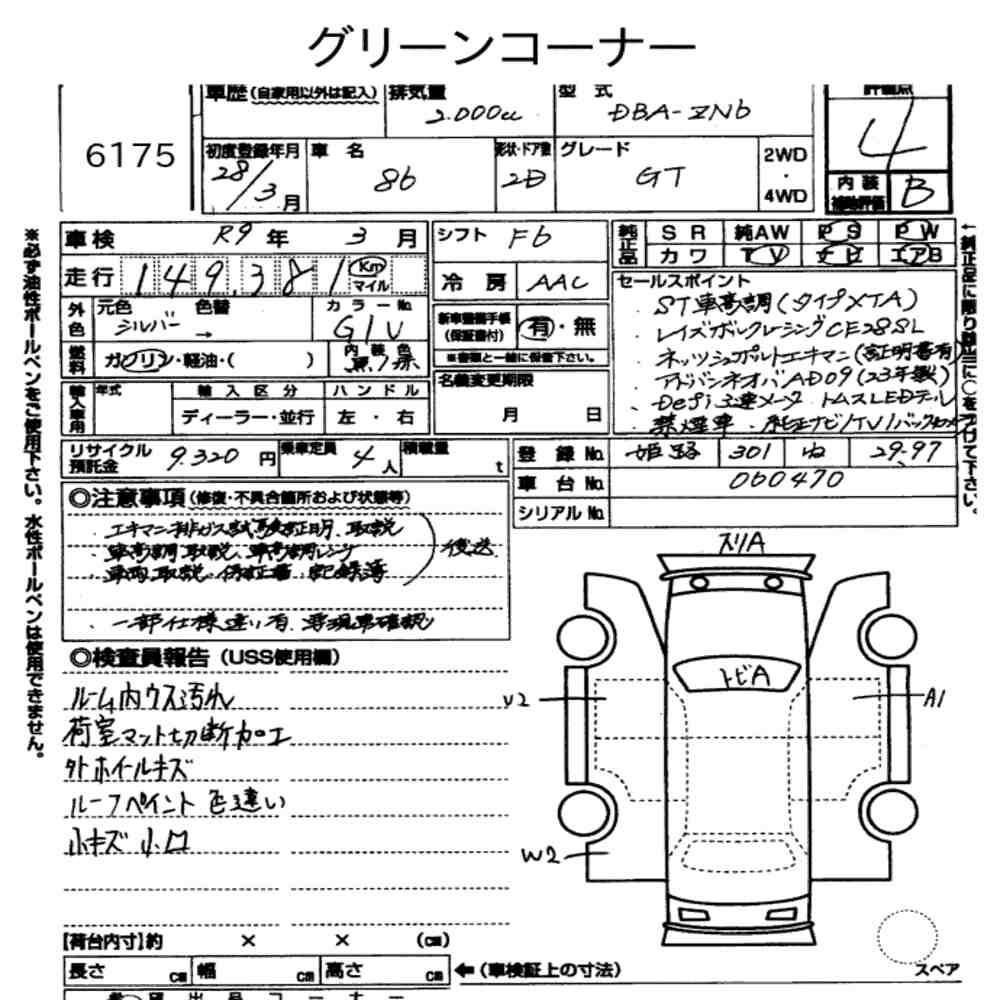 グリーンコーナー
6175
車歴 (自家用以外は記入) 排気量 2.000cc 型式 DBA-ZN6 評価点 4
初度登録年月 28/3月 車名 86 形状・ドア数 2D グレード GT 2WD・4WD 内装補助評価 B
車検 R9年 3月 シフト F6 純正品 SR 純AW PS PW
カワ TV ナビ エアB
走行 149,381 Km マイル 冷房 AAC
外色 元色 シルバー 色替 → カラーNo. G1U
新車整備手帳(保証書付) 有・無
※書類と一緒に保管下さい。
燃料 ガソリン・軽油・( ) 内装色
名義変更期限 月 日
輸入車用 年式 輸入区分 ハンドル
ディーラー・並行 左・右
セールスポイント
・ST車高調(タイプXTA)
・レイズボルクレーシングCE28SL
・ネッツシュポルトエキマニ(証明書有)
・アドバンネオバAD09(23年製)
・Defi3連メータ トムスLEDテール
・禁煙車・純正ナビ/TV/バックカメラ
リサイクル預託金 9.320円 乗車定員 4人 積載量 t
登録No. 姫路 301 ね 29-97
車台No. 060470
シリアルNo.
◎注意事項(修復・不具合箇所および状態等)
・エキマニ排ガス試験証明、取説
・車高調取説、車高調レンチ
・車両取説・保証書・記録簿
後送
・一部仕様違い有 要現車確認
◎検査員報告(USS使用欄)
ルーム内ウス汚れ
荷室マット切断加工
外ホイールキズ
ルーフペイント色違い
小キズ 小凹
ズリA
トビA
U2
A1
W2
【荷台内寸】約 × × (cm)
長さ cm 幅 cm 高さ cm ←(車検証上の寸法)
スペア
※必ず油性ボールペンをご使用下さい。水性ボールペンは使用できません。